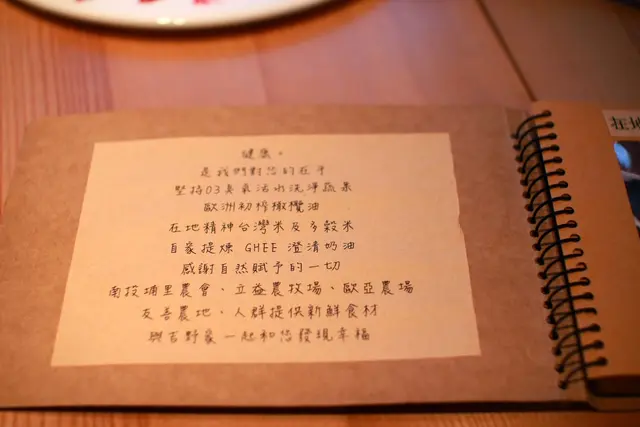 健康。
是我們對您的在乎
堅持O3臭氧活水洗淨蔬果
歐洲初榨橄欖油
在地精神台灣米及多穀米
自家提煉 GHEE 澄清奶油
感謝自然賦予的一切
南投埔里農會、立益農牧場、歐亞農場
友善農地、人群提供新鮮食材
與吉野家一起和您發現幸福
在地